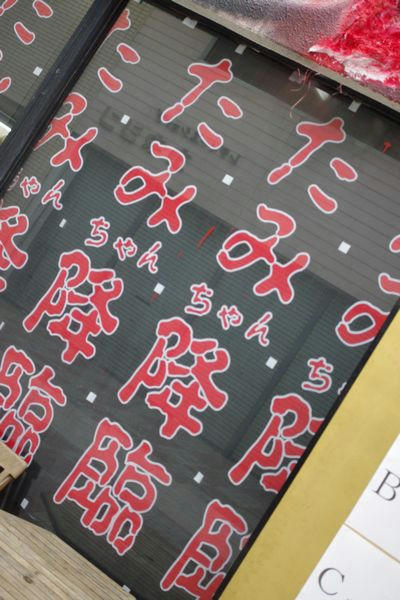 たみちゃん降臨
たみちゃん降臨
みち降臨
たみちゃん降
B
C